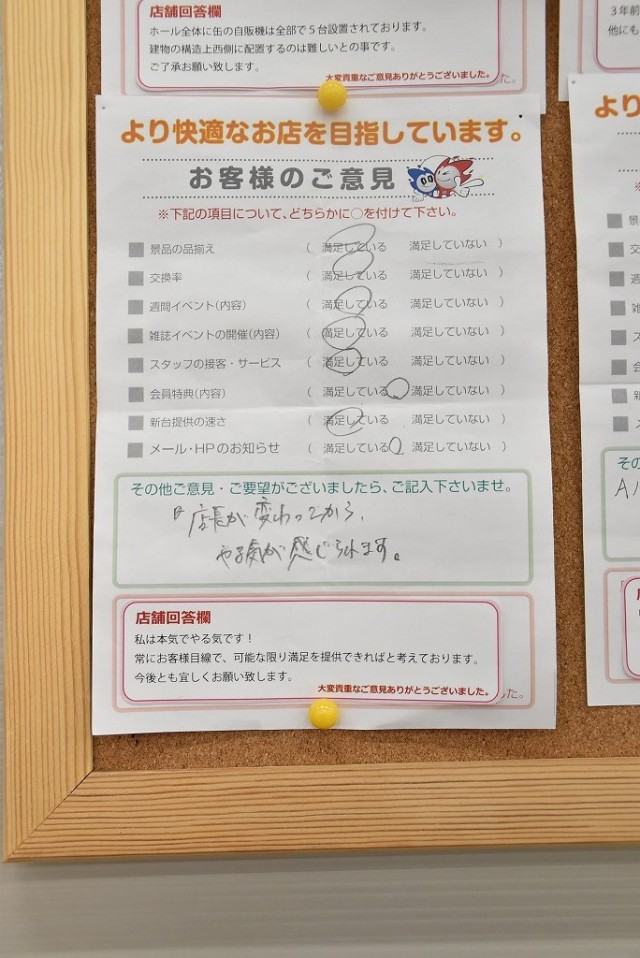 店舗回答欄
ホール全体に缶の自販機は全部で5台設置されております。
建物の構造上西側に配置するのは難しいとの事です。
ご了承お願い致します。
大変貴重なご意見ありがとうございました。
た。
3年前
他にも
より快適なお店を目指しています。
お客様のご意見
※下記の項目について、どちらかに○を付けて下さい。
景品の品揃え ( 満足している 満足していない )
交換率 ( 満足している 満足していない )
週間イベント(内容) ( 満足している 満足していない )
雑誌イベントの開催(内容) ( 満足している 満足していない )
スタッフの接客・サービス ( 満足している 満足していない )
会員特典(内容) ( 満足している 満足していない )
新台提供の速さ ( 満足している 満足していない )
メール・HPのお知らせ ( 満足している 満足していない )
その他ご意見・ご要望がございましたら、ご記入下さいませ。
店長が変わってから、
やる気が感じられます。
店舗回答欄
私は本気でやる気です!
常にお客様目線で、可能な限り満足を提供できればと考えております。
今後とも宜しくお願い致します。
大変貴重なご意見ありがとうございました。
た。
より
※
景
交
週
雑
ス
会
新
メ
その